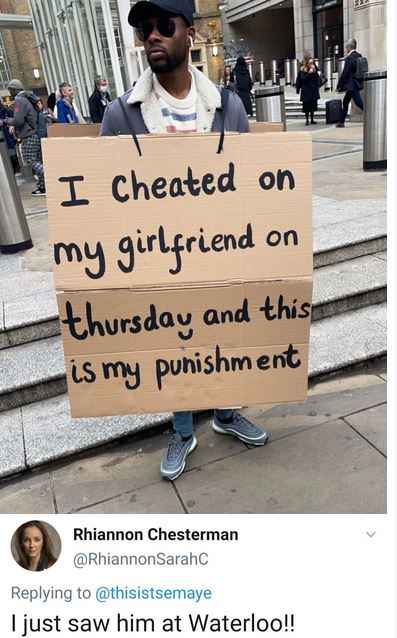 I Cheated on
my girlfriend on
thursday and this
is my punishment
Rhiannon Chesterman
@RhiannonSarahC
Replying to @thisistsemaye
I just saw him at Waterloo!!